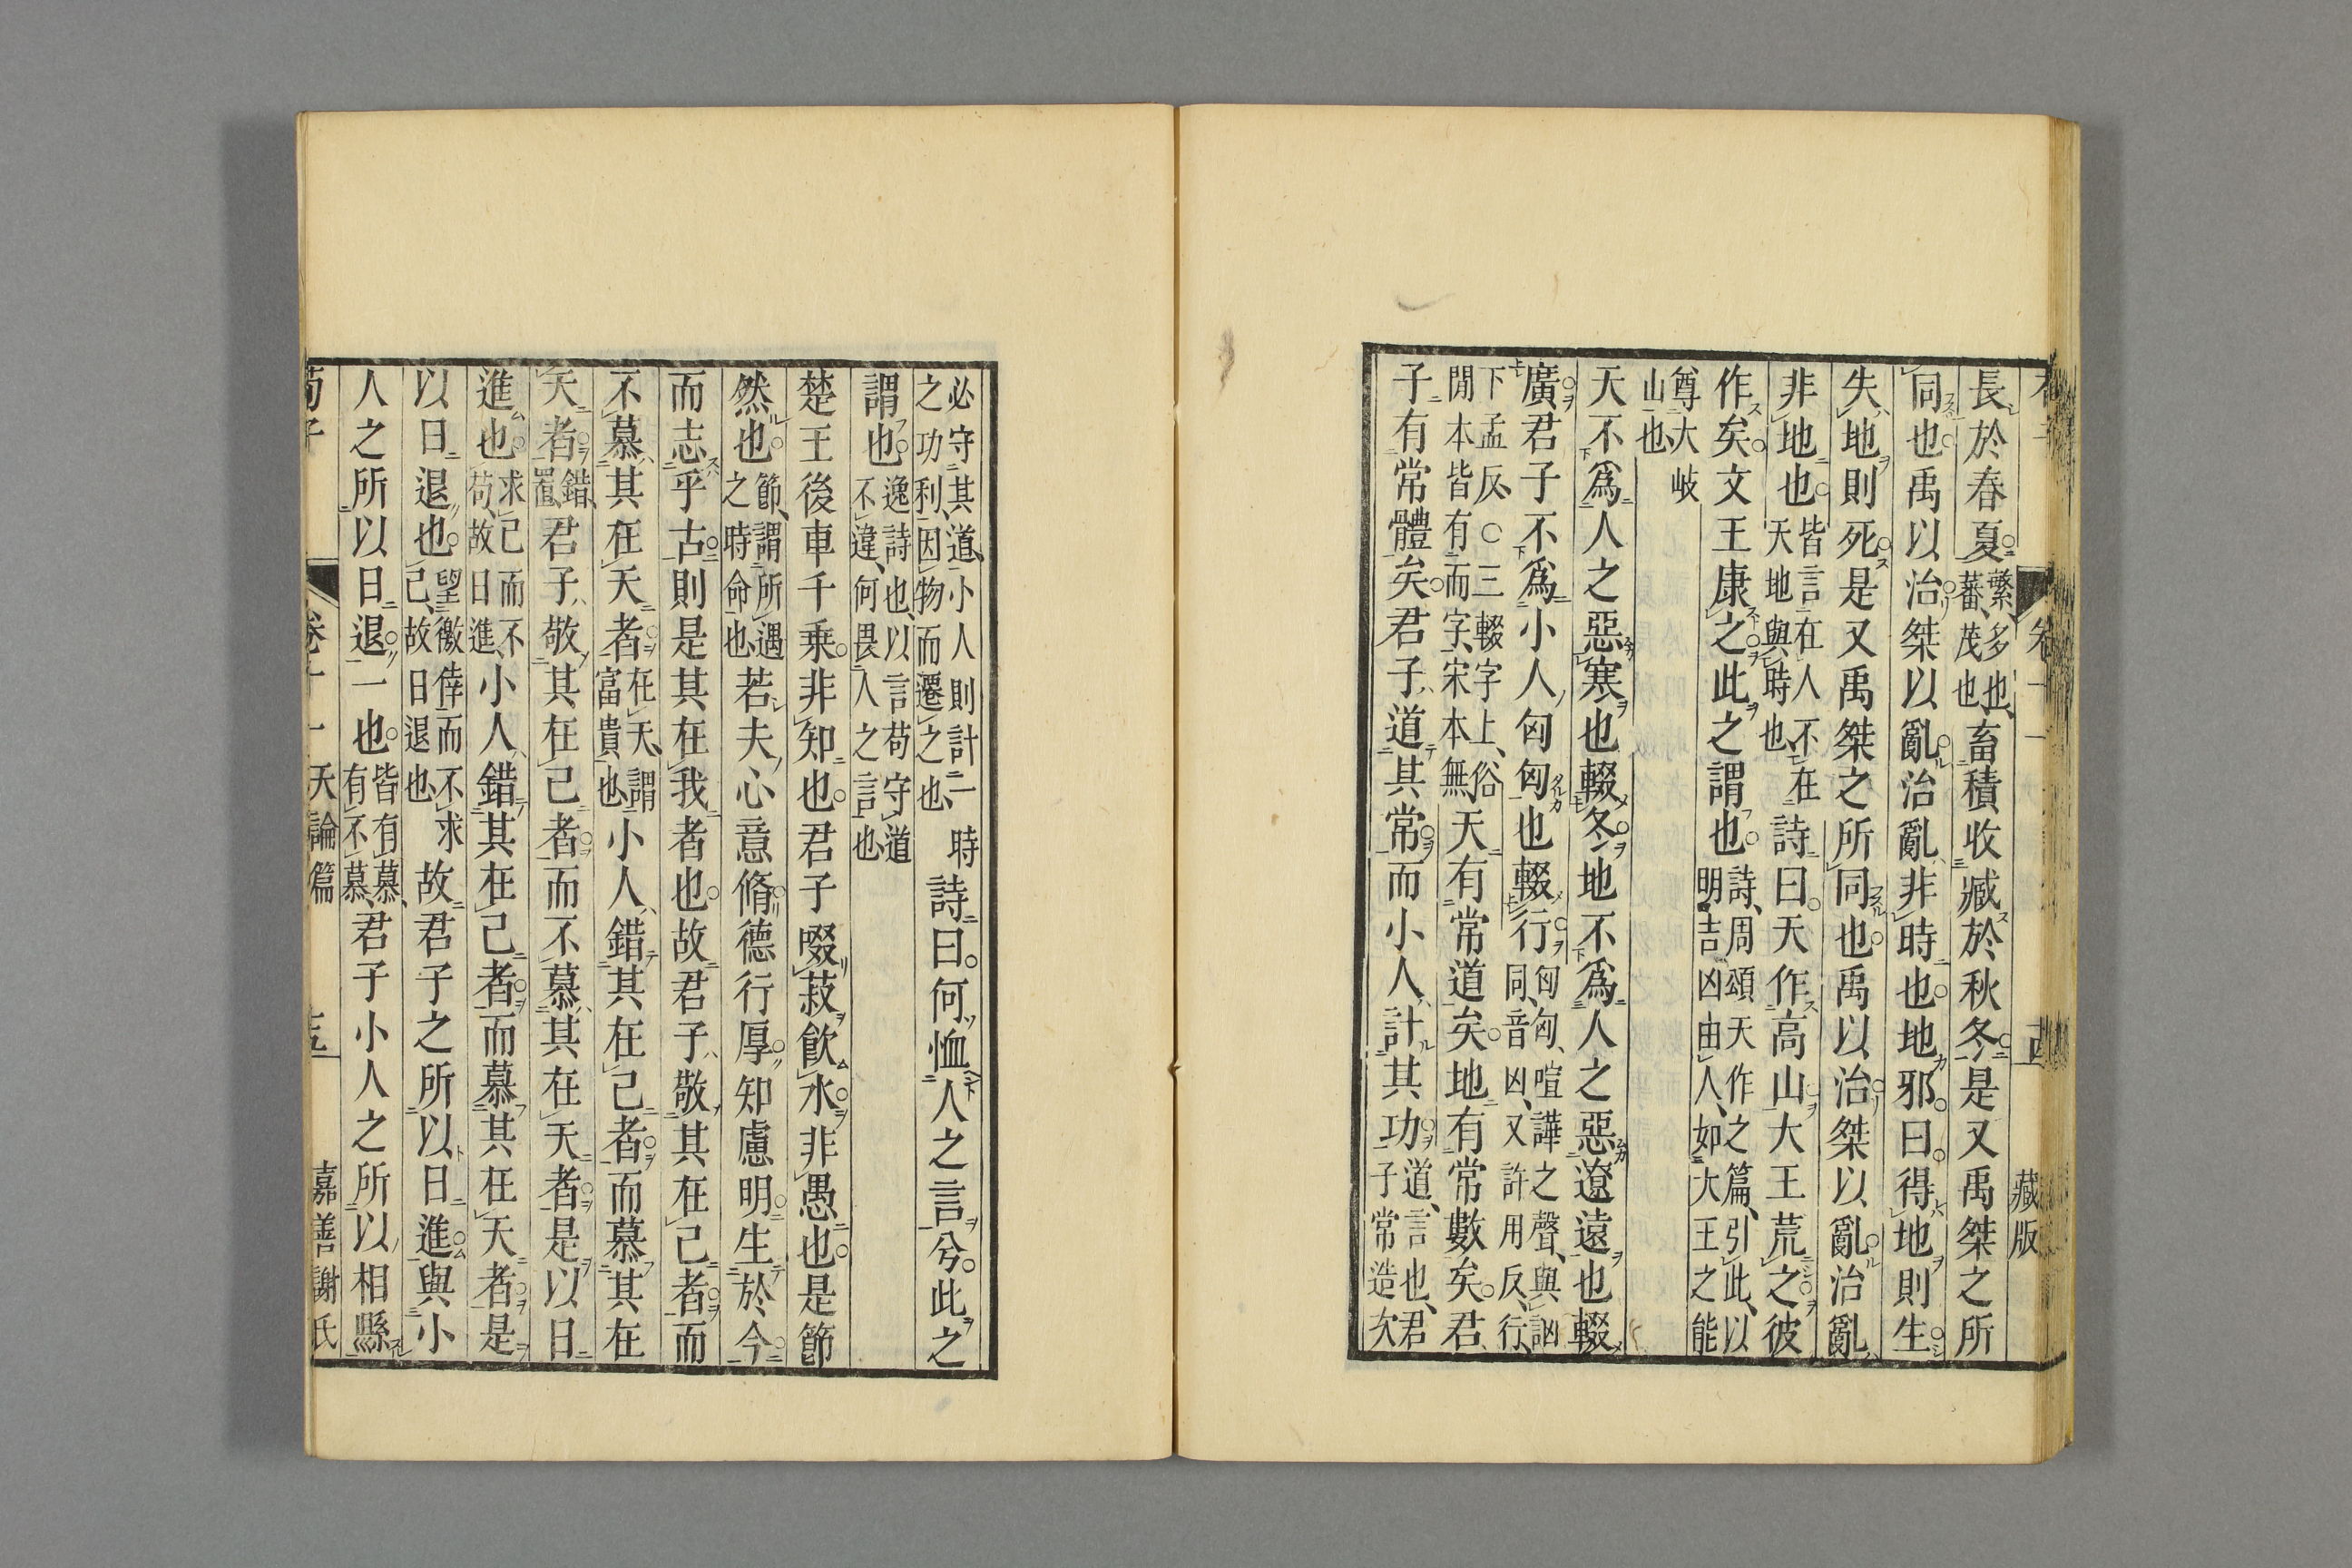 藏版
長於春夏繁多也、蕃茂也、畜積收臧於秋冬是又禹桀之所
同也禹以治桀以亂治亂非時也地邪曰得地則生
失地則死是又禹桀之所同也禹以治桀以亂治亂
非地也皆言在人不在天地與時也、詩曰天作高山大王荒之彼
作矣文王康之此之謂也詩、周頌天作之篇、引此、以明吉凶由人、如大王之能
尊大岐山也
天不爲人之惡寒也輟冬地不爲人之惡遼遠也輟
廣君子不爲小人匈匈也輟行匈匈、喧譁之聲、與訩同、音凶、又許用反、行、
下孟反、○三輟字上、俗閒本皆有而字、宋本無天有常道矣地有常數矣君
子有常體矣君子道其常而小人計其功道、言也、君子常造次
必守其道、小人則計一時之功利、因物而遷之也詩曰何恤人之言兮此之
謂也逸詩也、以言苟守道不違、何畏人之言也
楚王後車千乗非知也君子啜菽飮水非愚也是節
然也節、謂所遇之時命也若夫心意脩德行厚知慮明生於今
而志乎古則是其在我者也故君子敬其在己者而
不慕其在天者在天、謂富貴也小人錯其在己者而慕其在
天者錯、置、君子敬其在己者而不慕其在天者是以日
進也求己而不苟、故日進、小人錯其在己者而慕其在天者是
以日退也望徼倖而不求己、故日退也故君子之所以日進與小
人之所以日退一也皆有慕、有不慕、君子小人之所以相縣
荀子 卷十一 天論篇 十五 嘉善謝氏